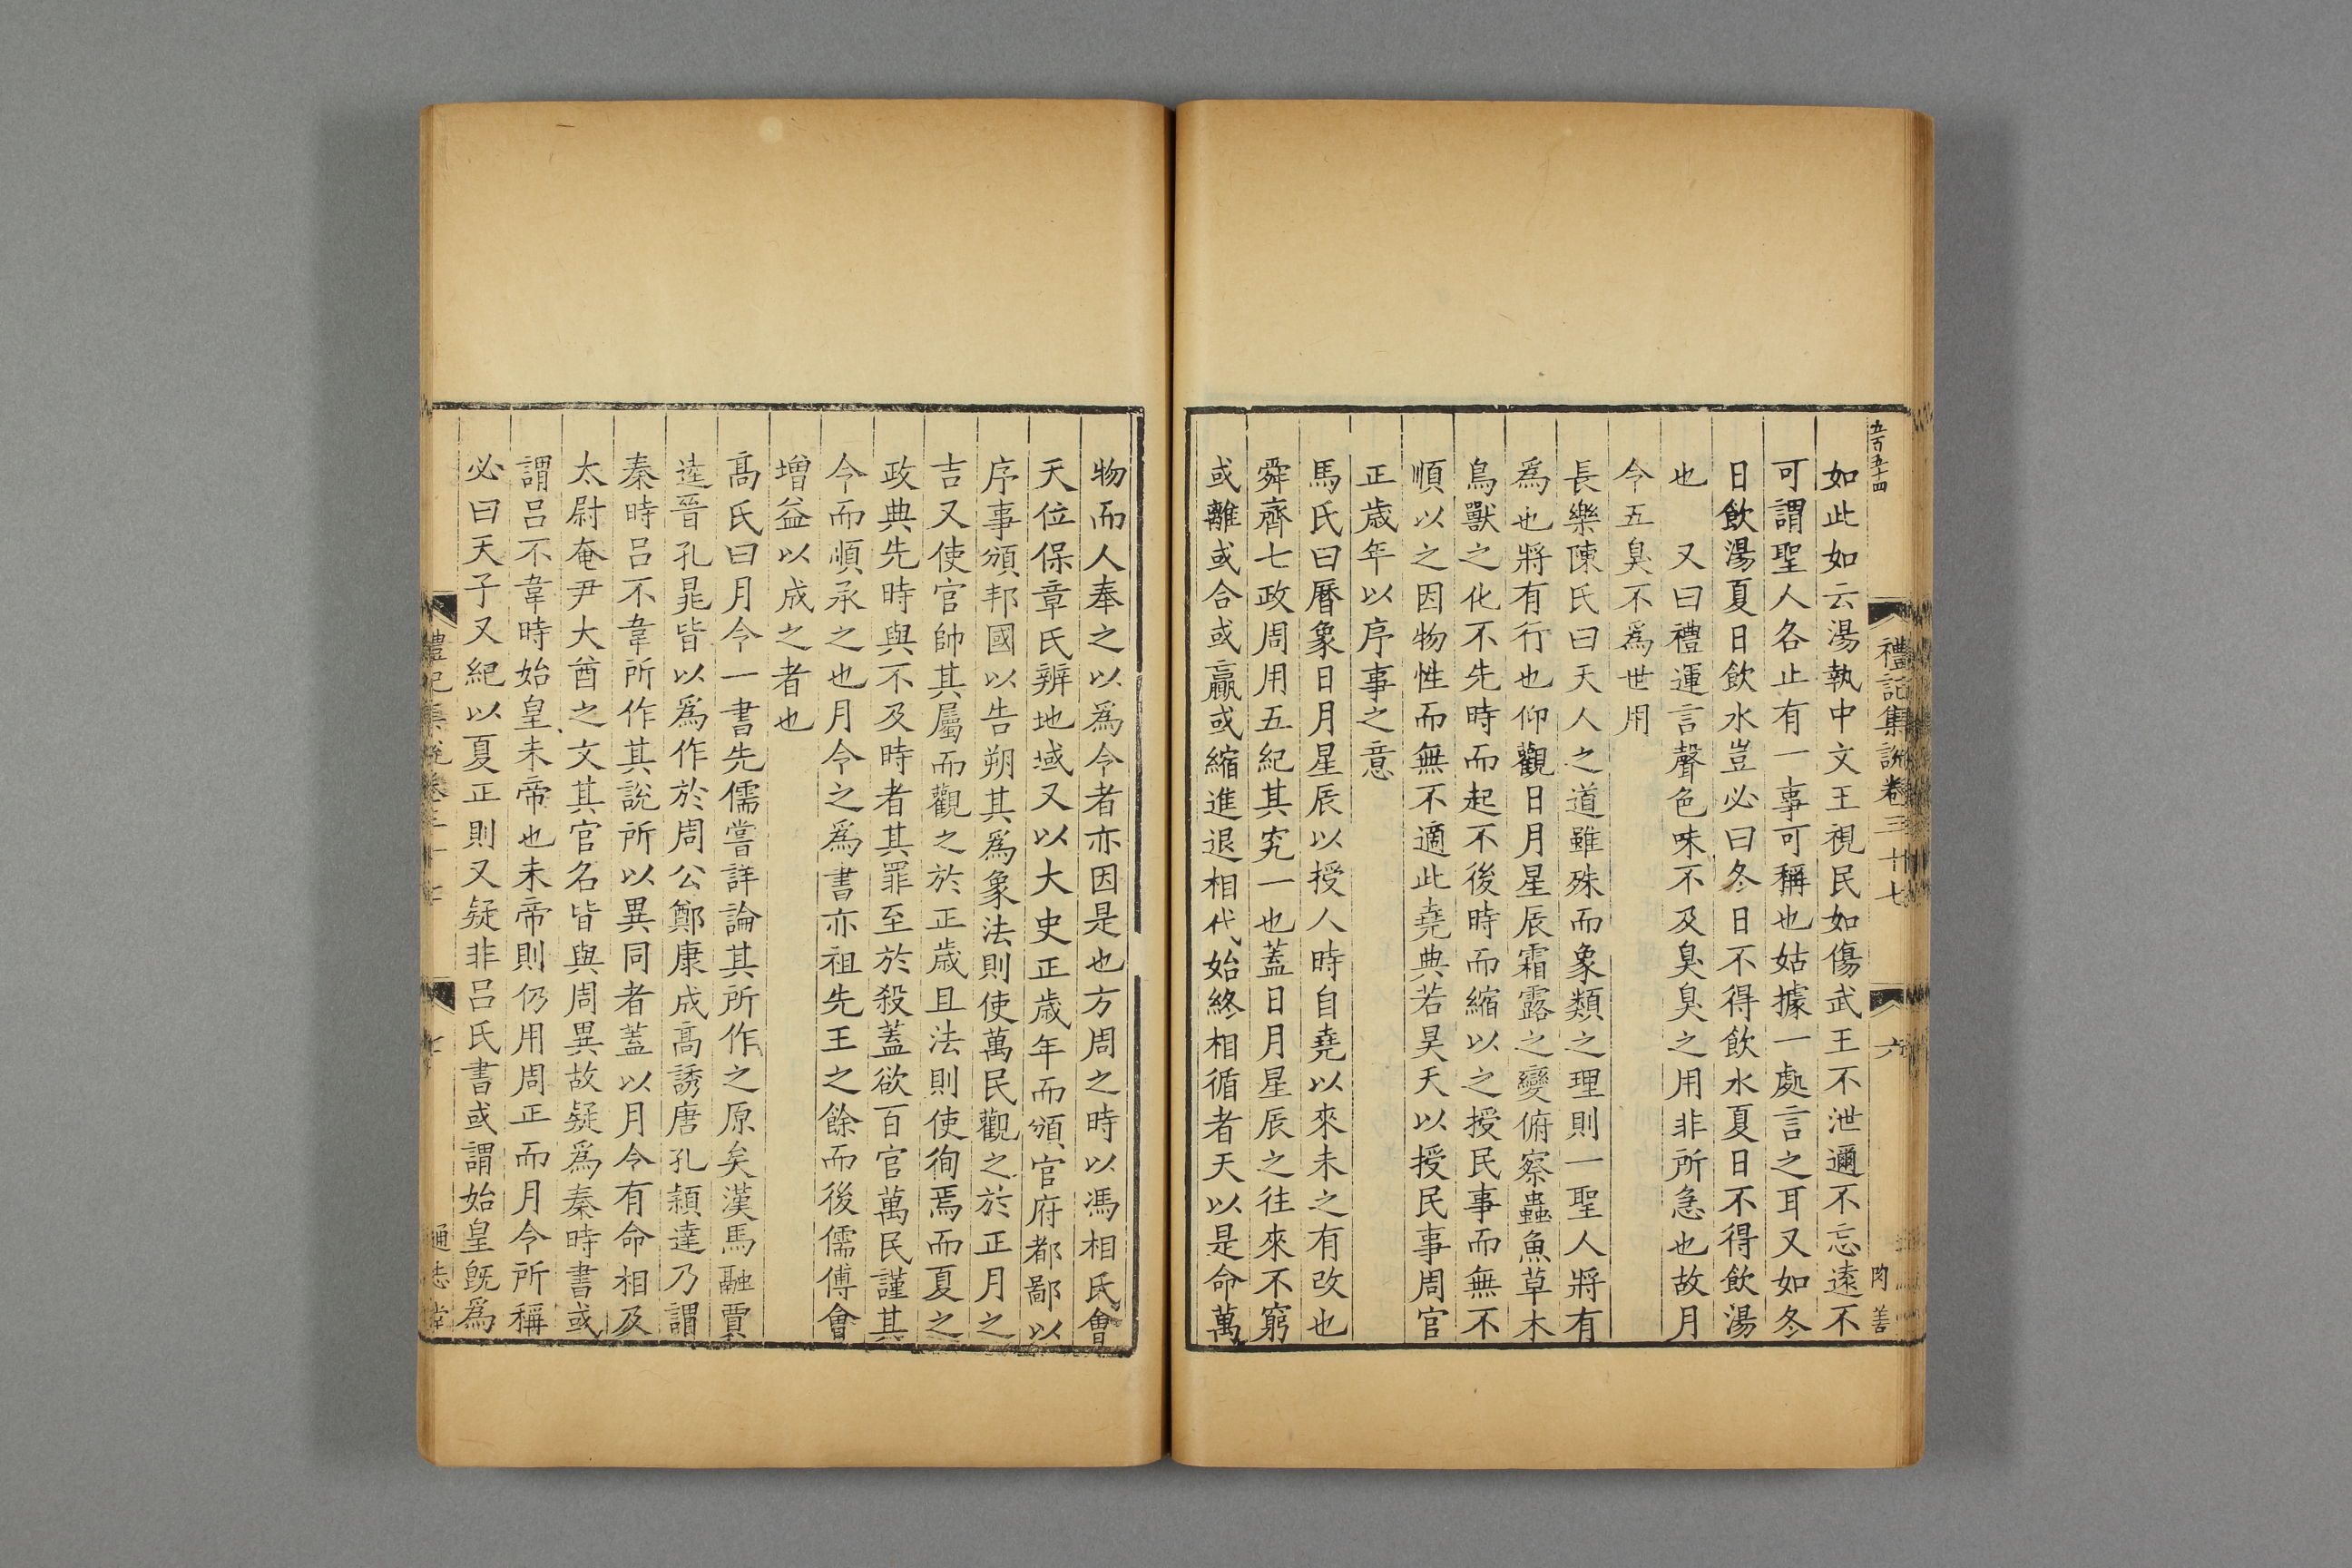 五百五十四
禮記集說卷三十七
六
如此如云湯執中文王視民如傷武王不泄邇不忘遠不
可謂聖人各止有一事可稱也姑據一處言之耳又如冬
日飲湯夏日飲水豈必曰冬日不得飲水夏日不得飲湯
也 又曰禮運言聲色味不及臭臭之用非所急也故月
令五臭不爲世用
長樂陳氏曰天人之道雖殊而象類之理則一聖人將有
爲也將有行也仰觀日月星辰霜露之變俯察蟲魚草木
鳥獸之化不先時而起不後時而縮以之授民事而無不
順以之因物性而無不適此堯典若昊天以授民事周官
正歲年以序事之意
馬氏曰曆象日月星辰以授人時自堯以來未之有改也
舜齊七政周用五紀其究一也蓋日月星辰之往來不窮
或離或合或贏或縮進退相代始終相循者天以是命萬
物而人奉之以爲令者亦因是也方周之時以馮相氏會
天位保章氏辨地域又以大史正歲年而頒官府都鄙以
序事頒邦國以告朔其爲象法則使萬民觀之於正月之
吉又使官帥其屬而觀之於正歲且法則使徇焉而夏之
政典先時與不及時者其罪至於殺蓋欲百官萬民謹其
令而順承之也月令之爲書亦祖先王之餘而後儒傅會
增益以成之者也
高氏曰月令一書先儒嘗詳論其所作之原矣漢馬融賈
逵晉孔晁皆以爲作於周公鄭康成高誘唐孔穎達乃謂
秦時呂不韋所作其說所以異同者蓋以月令有命相及
太尉奄尹大酋之文其官名皆與周異故疑爲秦時書或
謂呂不韋時始皇未帝也未帝則仍用周正而月令所稱
必曰天子又紀以夏正則又疑非呂氏書或謂始皇旣爲
禮記集說卷三十七
七
通志堂